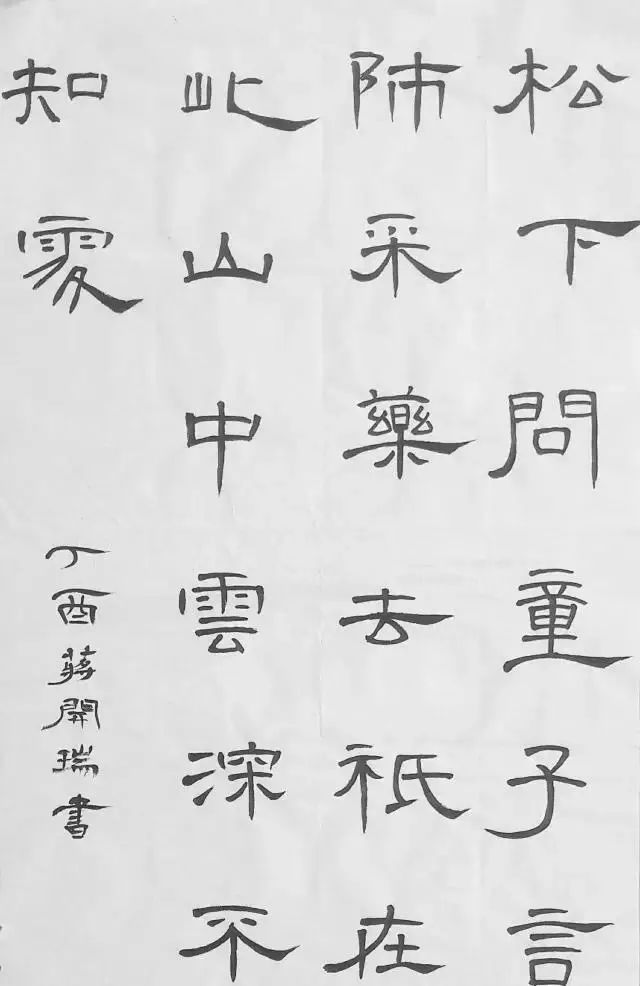 松下問童子言
師采藥去祇在
此山中雲深不
知處
丁酉蔣開瑞書